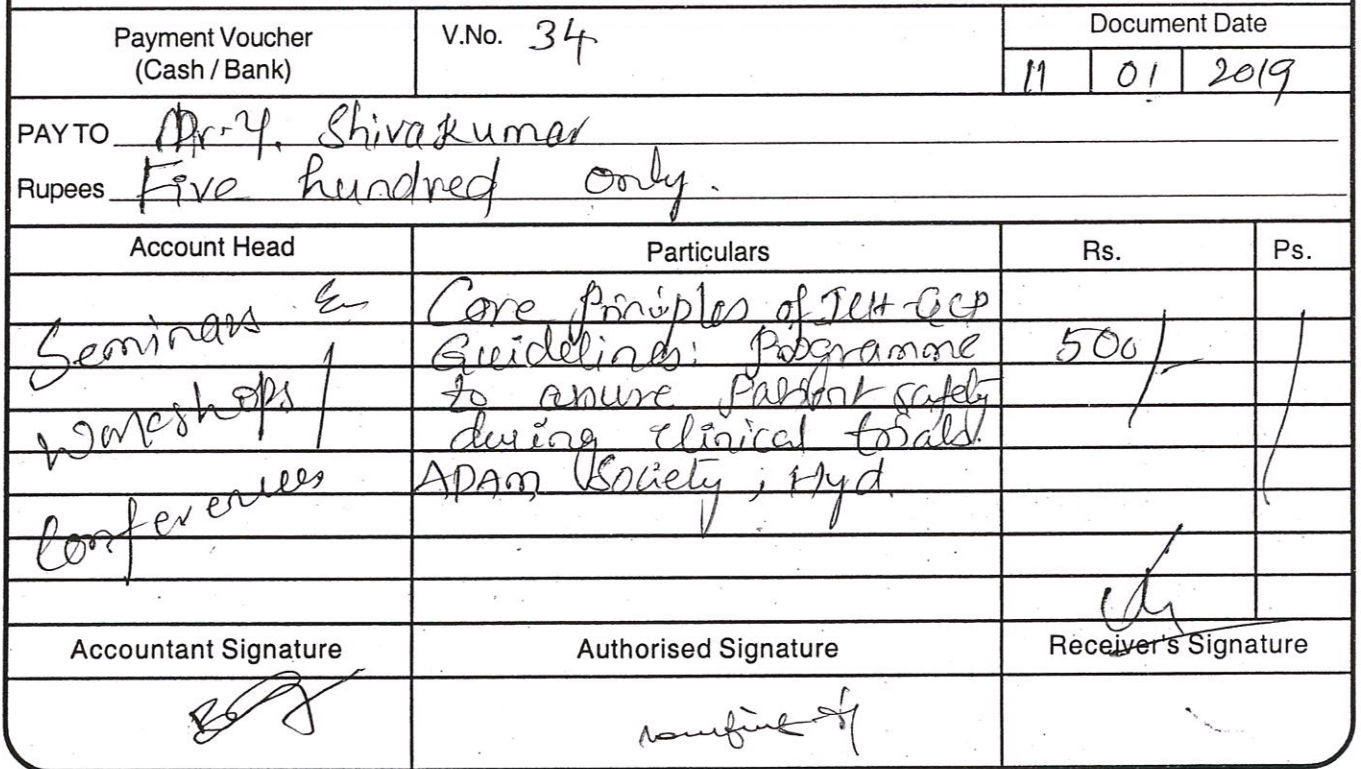 Payment Voucher
(Cash / Bank)
V.No. 34
Document Date
11 01 2019
PAY TO Mr. Y. Shivakumar
Rupees Five hundred only.
Account Head Particulars Rs. Ps.
Seminars &
Workshops /
Conferences
Core Priniples of ICH-GCP
Guidelines: Programme
to ensure Patient safety
during clinical trials.
ADAM Society, Hyd.
500/-
Accountant Signature Authorised Signature Receiver's Signature